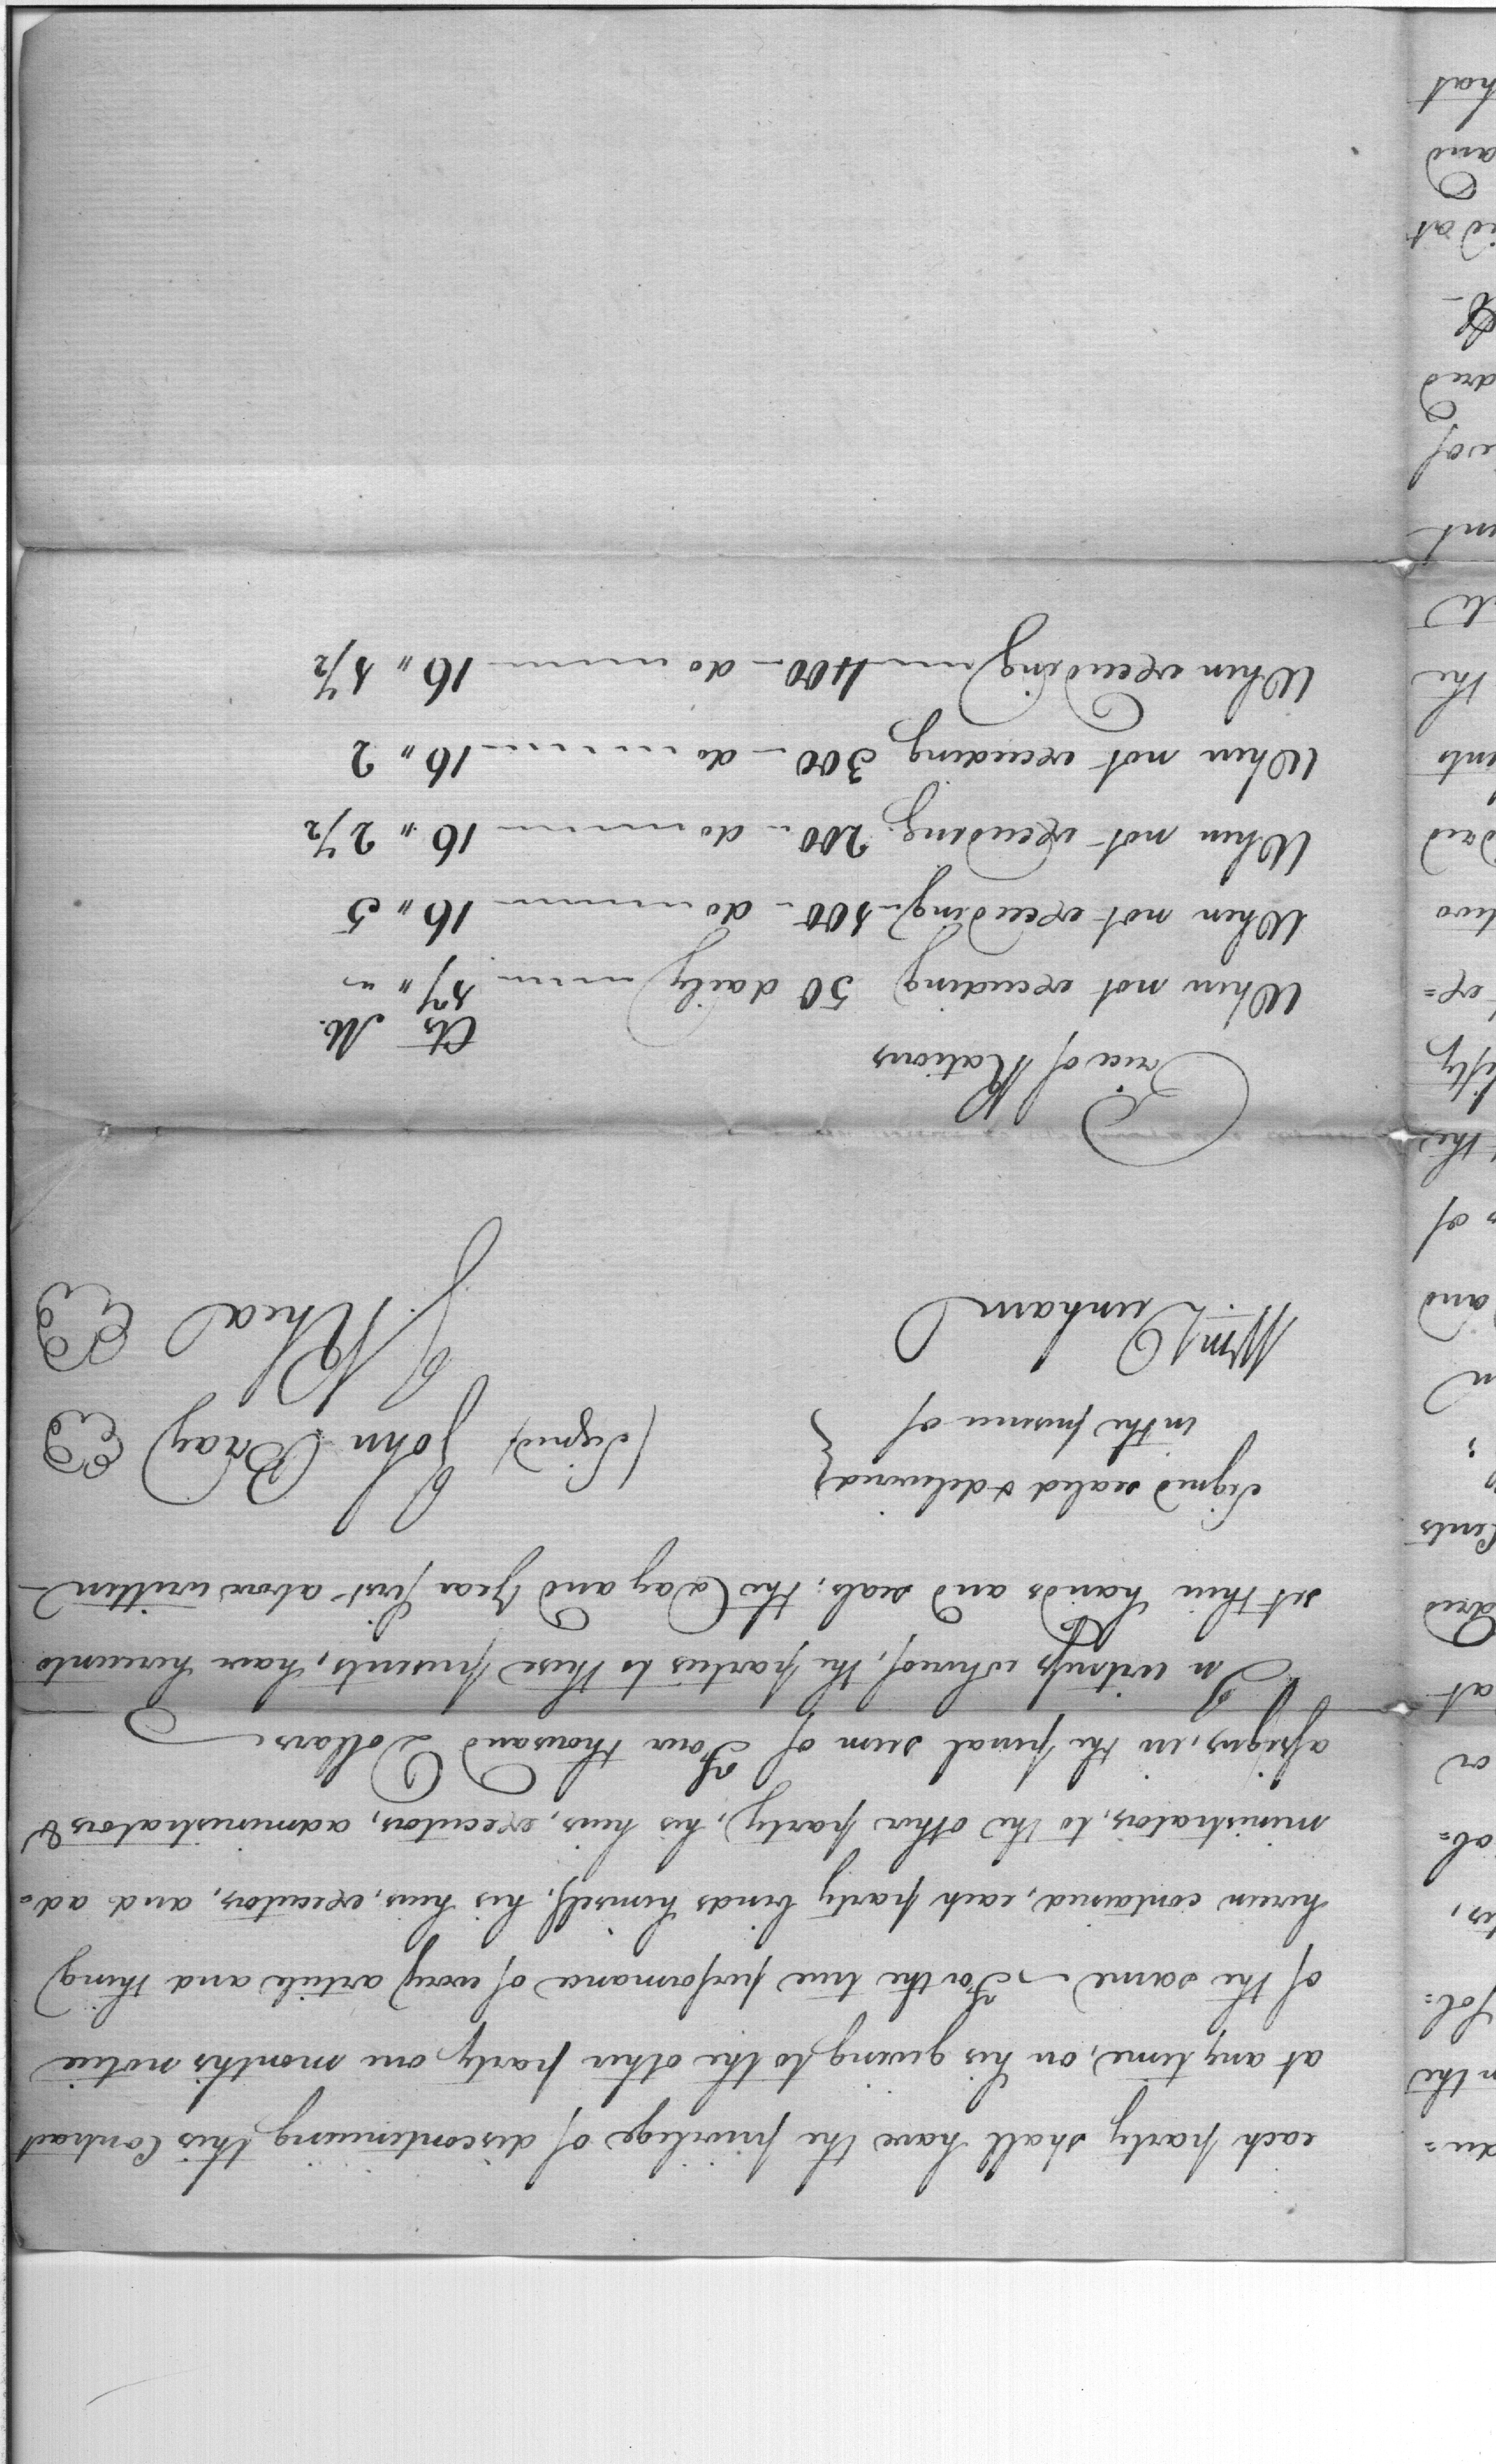 each party shall have the privilege of discontinuing this Contract
at any time, on his giving to the other party one months notice
of the same — For the true performance of every article and thing
herein contained, each party binds himself, his heirs, executors, and ad=
ministrators, to the other party, his heirs, executors, administrators &
assigns, in the penal sum of Four thousand Dollars
In witness whereof, the parties to these presents, have hereunto
set their hands and seals, the Day and Year first above written —
Signed sealed & delivered }
in the presence of }
Wm Dunham
(signed) John Bray
J. Rhea
Price of Rations
Cts M.
When not exceeding 50 daily 17 " "
When not exceeding - 100 - do 16 " 5
When not exceeding 200 - do 16 " 2 1/2
When not exceeding 300 - do 16 " 2
When exceeding 400 - do 16 " 1 1/2
an=
n the
fol=
ob=
or
at
Cents
and
of
the
fifty
ex=
two
said
ents
the
ent
of
dred
id at
and
hat